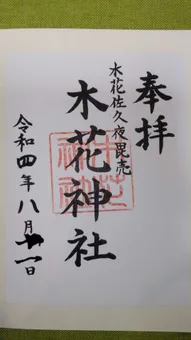 奉拝
木花佐久夜毘売
木花神社
令和四年八月十一日
木花神社